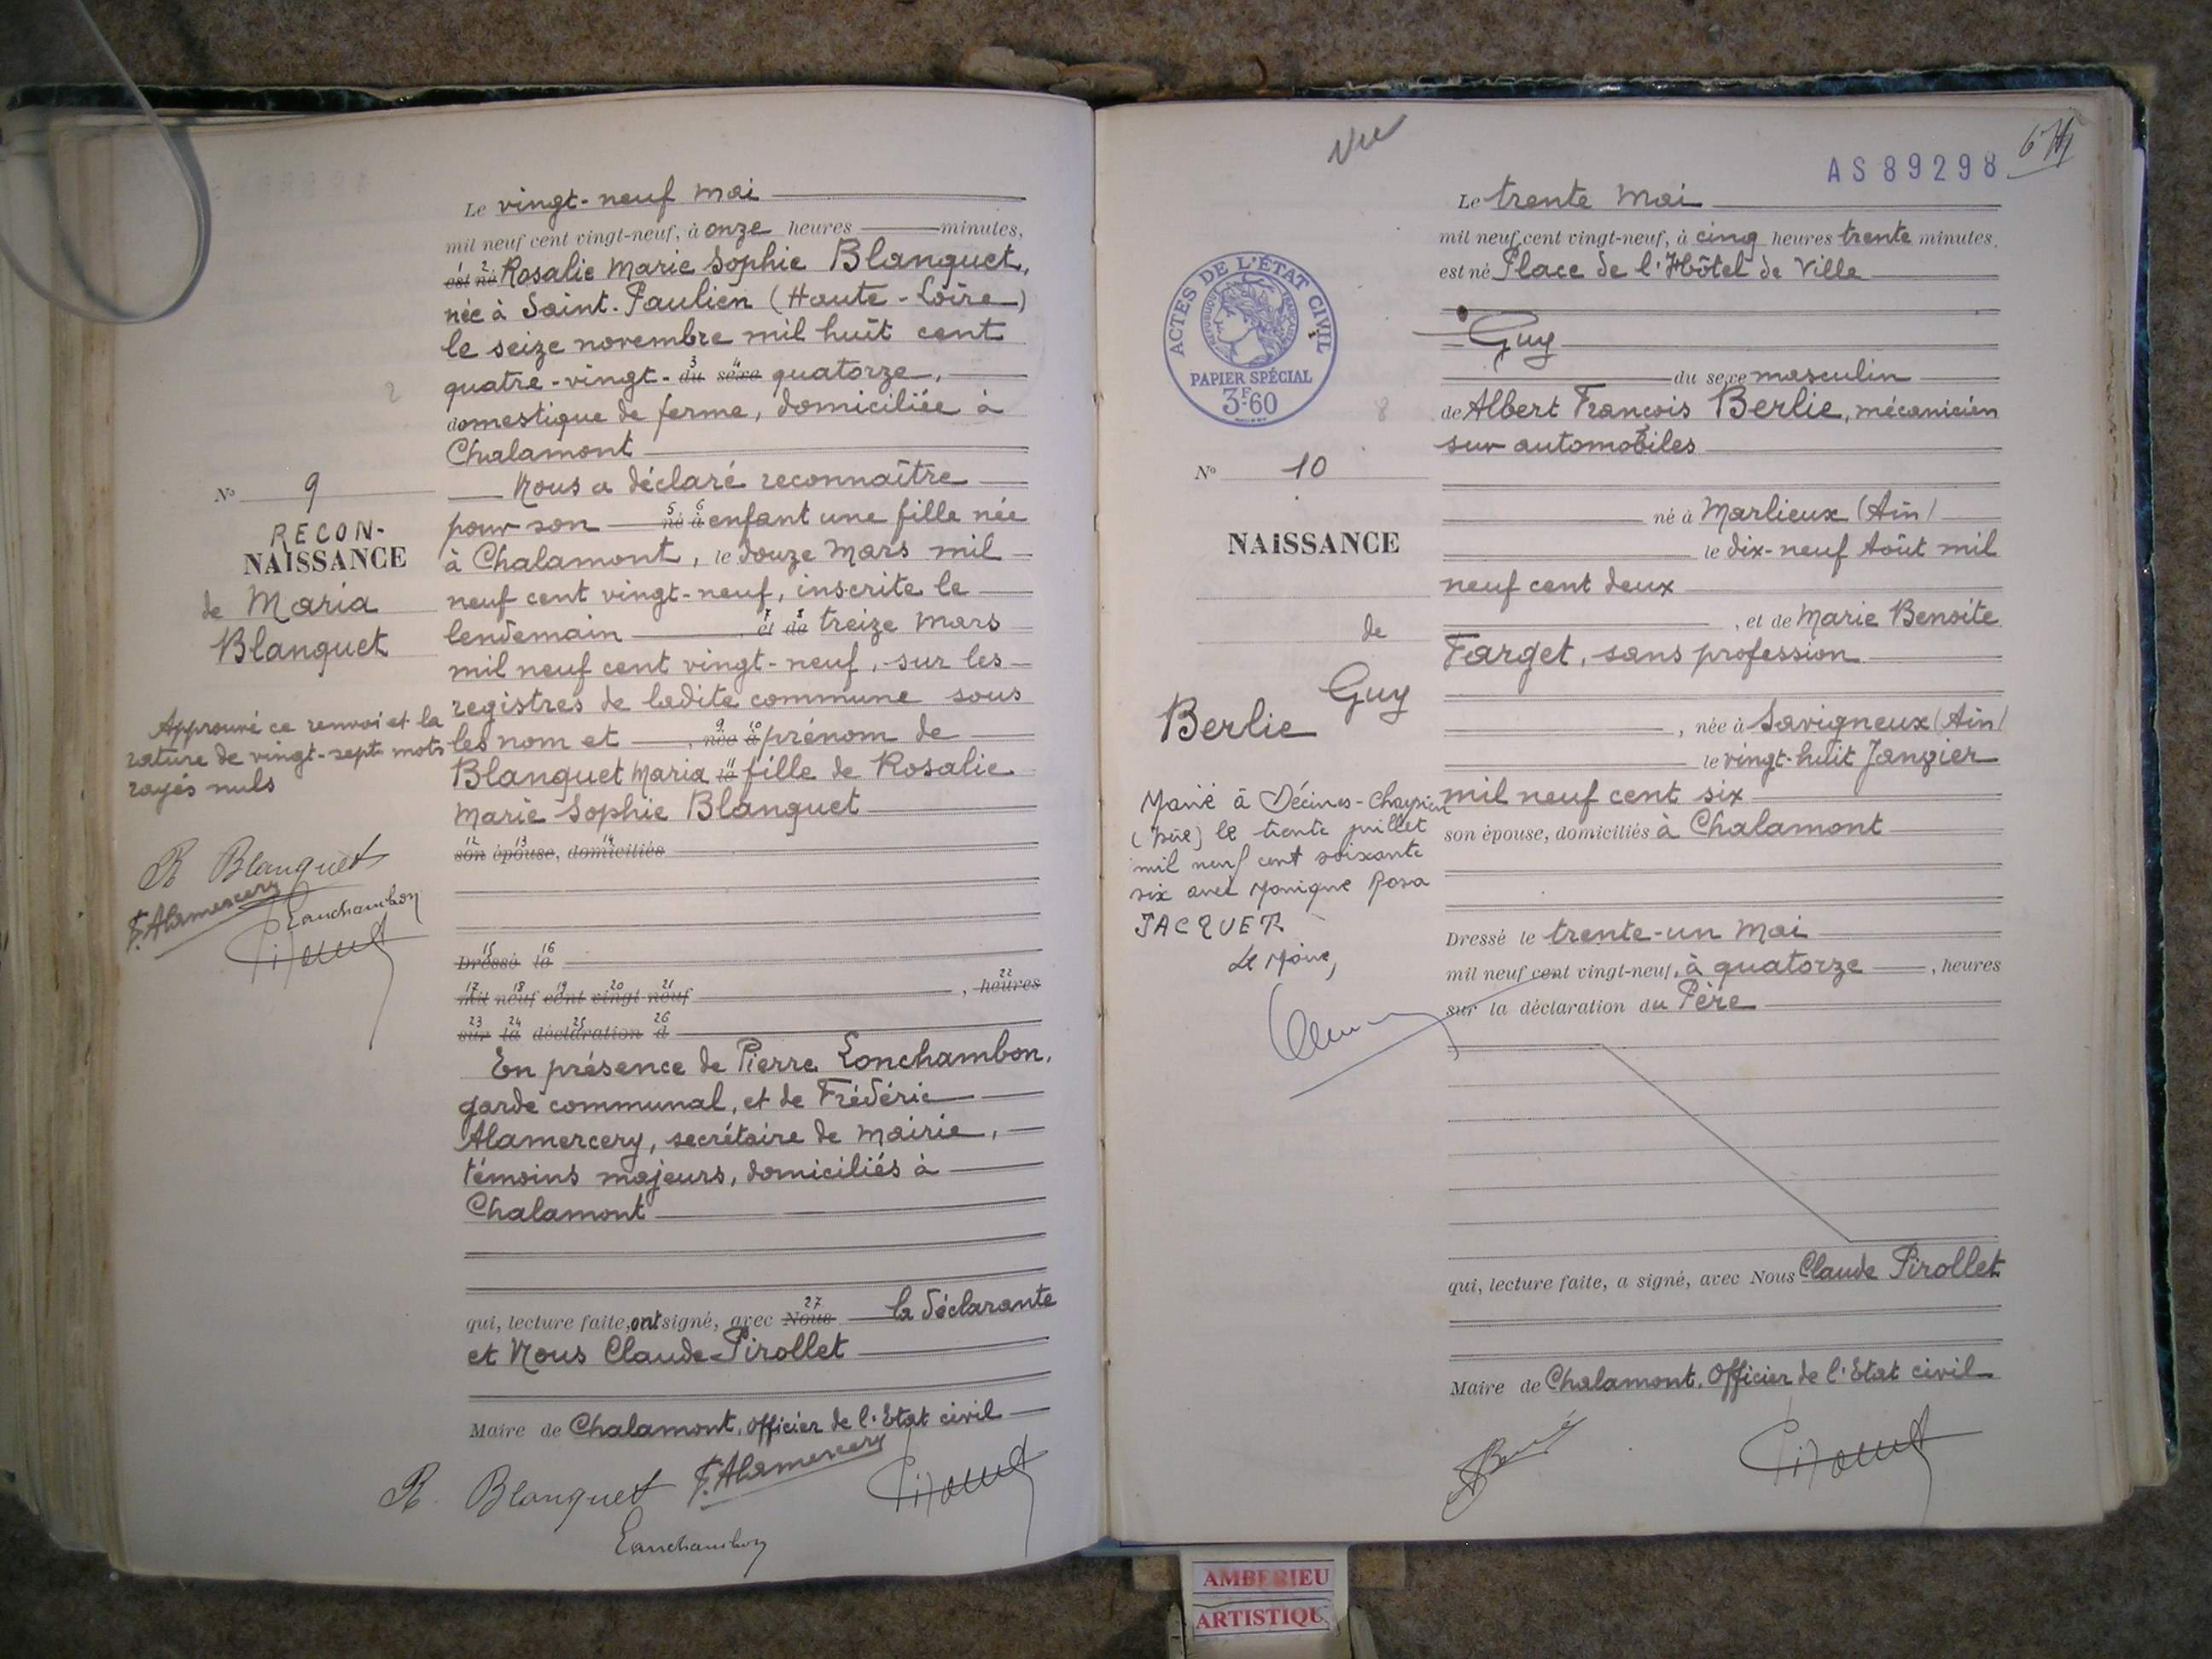 Le vingt-neuf mai
mil neuf cent vingt-neuf, à onze heures minutes,
1 2
est né Rosalie Marie Sophie Blanquet,
née à Saint-Paulien (Haute-Loire)
le seize novembre mil huit cent
3 4
quatre-vingt- du sexe quatorze,
domestique de ferme, domiciliée à
Chalamont
Nous a déclaré reconnaître
5 6
pour son né à enfant une fille née
à Chalamont, le douze Mars mil
neuf cent vingt-neuf, inscrite le
7 8
lendemain et de treize Mars
mil neuf cent vingt-neuf, sur les
registres de ladite commune sous
9 10
les nom et , née à prénom de
11
Blanquet Maria le fille de Rosalie
Marie Sophie Blanquet
12 13 14
son épouse, domiciliés
15 16
Dressé le
17 18 19 20 21 22
mil neuf cent vingt neuf , heures
23 24 25 26
sur la déclaration d
En présence de Pierre Lonchambon,
garde communal, et de Frédéric
Alamercery, secrétaire de mairie,
témoins majeurs, domiciliés à
Chalamont
27
qui, lecture faite, ont signé, avec Nous la déclarante
et Nous Claude Pirollet
Maire de Chalamont, Officier de l'Etat civil
R. Blanquet F. Alamercery Pirollet
Lonchambon
N° 9
RECON-
NAISSANCE
de Maria
Blanquet
Approuvé ce renvoi et la
rature de vingt-sept mots
rayés nuls
R Blanquet
F. Alamercery
Lonchambon
Pirollet
Vu
AS 89298
Le trente Mai
mil neuf cent vingt-neuf, à cinq heures trente minutes,
est né Place de l'Hôtel de Ville
Guy
du sexe masculin
de Albert François Berlie, mécanicien
sur automobiles
né à Marlieux (Ain)
le dix-neuf Août mil
neuf cent deux
, et de Marie Benoite
Farget, sans profession
, née à Savigneux (Ain)
le vingt-huit Janvier
mil neuf cent six
son épouse, domiciliés à Chalamont
Dressé le trente-un Mai
mil neuf cent vingt-neuf, à quatorze , heures
sur la déclaration du Père
qui, lecture faite, a signé, avec Nous Claude Pirollet
Maire de Chalamont, Officier de l'Etat civil
Pirollet
ACTES DE L'ÉTAT CIVIL
RÉPUBLIQUE FRANÇAISE
PAPIER SPÉCIAL
3F60
N° 10
NAISSANCE
de
Guy
Berlie
Marié à Décines-Charpieu
(Isère) le trente juillet
mil neuf cent soixante
six avec Monique Rosa
JACQUET
Le Maire,
AMBERIEU
ARTISTIQU